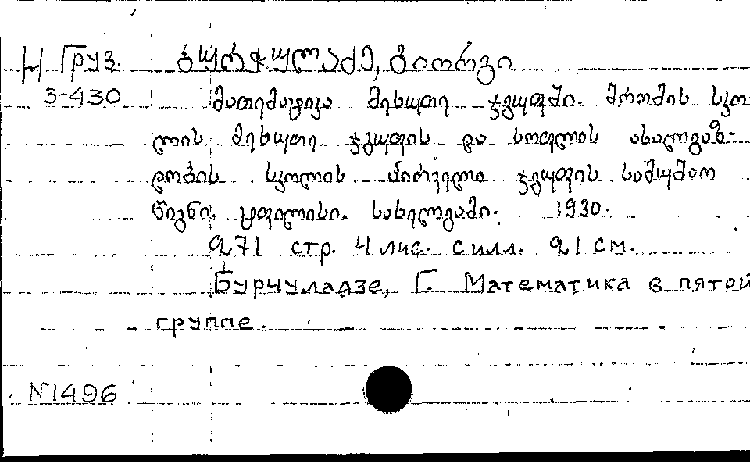 Груз. ბურჭულაძე, გიორგი
3-430 მათემატიკა მეხუთე ჯგუფში. შრომის სკო-
ლის მეხუთე ჯგუფის და სოფლის ახალგაზ-
დობის სკოლის პირველი ჯგუფის სამუშაო
წიგნი. ტფილისი. სახელგამი. 1930.
271 стр. 4 лис. с илл. 21 см.
Бурчуладзе, Г. Математика в пятой
группе.
N1496